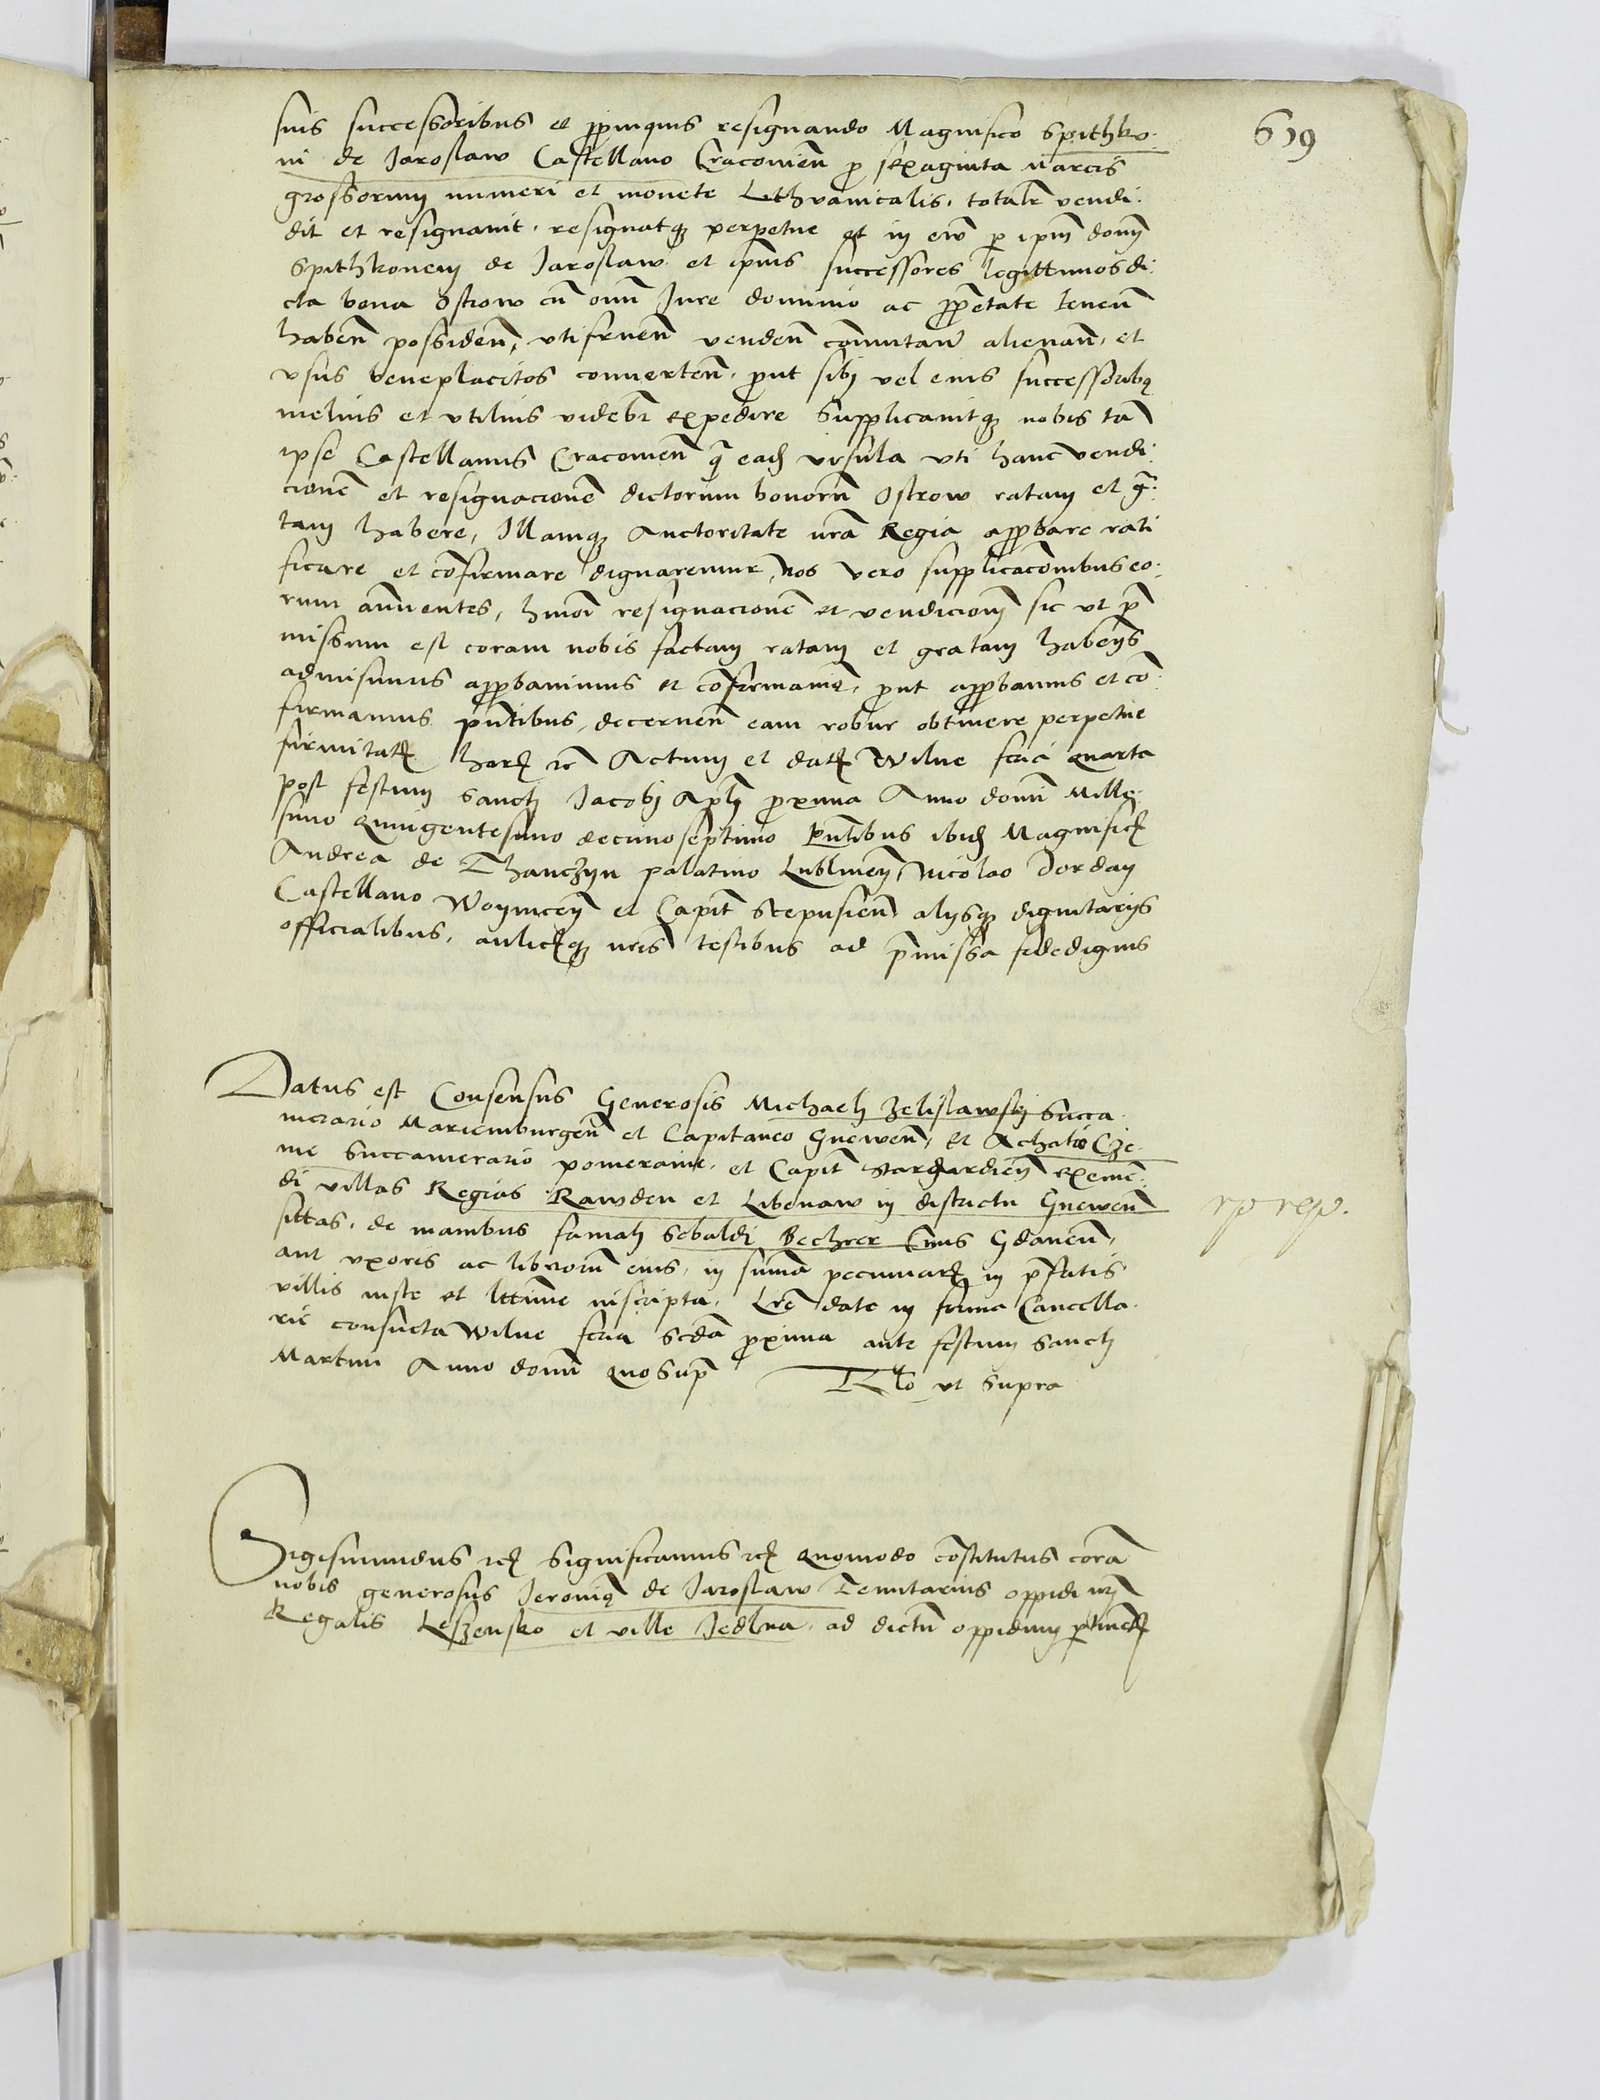 619
suis successoribus et ꝓpinquis resignando Magnifico Spithko⸗
ni de Jaroslaw Castellano Cracovieñ ꝓ sexaginta Marcis
grossorum numeri et monete Lithvanicalis, totalr vendi⸗
dit et resignavit, resignatq̃ perpetue et in ewũ ꝑ ipm̃ dominũ
Spithkonem de Jaroslaw et ipius successores legittimos di⸗
cta bona Ostrow cũ omĩ Jure dominio ac ꝓprietate teneñ
habeñ possideñ, utifrueñ vendeñ cõmutañ alienañ, et
usus beneplacitos converteñ, ꝓut sibi vel eius successoribꝰ
melius et utilius videbr expedire Supplicavitq̃ nobis tã
ipse Castellanus Cracovieñ q̃ eadẽ ursula uti hanc vendi
cionẽ et resignacionẽ dictorum bonorũ Ostrow ratam et gra⸗
tam habere, Illamq̃ Auctoritate nr̃a Regia apꝓbare rati
ficare et cõfirmare dignaremur, nos vero supplicacõnibus eo⸗
rum añuentes, hmõi resignacionẽ et vendicionẽ sic ut p̃
missum est coram nobis factam ratam et gratam habeñs
admisimus apꝓbavimus et cõfirmavimꝰ, ꝓut apꝓbamus et cõ
firmamus pñtibus, decerneñ eam robur obtinere perpetue
firmitatis harũ rc̃ Actum et datũ Wilne feria quarta
post festum Sancti Jacobi Apli ꝓxima Anno domini Mille⸗
simo Quingentesimo decimoseptimo Pñtibus ibidẽ Magnificis
Andrea de Thanczyn palatino Lublineñ, Nicolao Jordan
Castellano Woyniceñ et Capit̃ Scepusieñ alysq̃ dignitarys
officialibus, aulicisq̃ nr̃is testibus ad p̃missa fidedignis
Datus est Consensus Generosis Michaeli Zelislawski Succa⸗
merario Mariemburgeñ et Capitaneo Gneweñ, et Achatio Cze⸗
me Succamerario pomeranie, et Capit̃ Stargardieñ eximẽ⸗
di villas Regias Rawden et Libenaw in districtu Gneweñ
sittas, de manibus famati Sebaldi Bechrer Civis Gdaneñ,
aut uxoris ac liberorũ eius, in sum̃a pecuniarũ in p̃fatis
villis iuste et lttime inscripta, Lrẽ date in forma Cancella⸗
rie consueta Wilne feria scdã ꝓxima ante festum Sancti
Martini Anno domini quo supr̃
Rlo ut supra
rp reg.
Sigismundus rc̃ Significamus rc̃ Quomodo cõstitutus corã
nobis generosus Jeronimꝰ de Jaroslaw Tenutarius oppidi nri
Regalis Leszensko et ville Jedlna, ad dictũ oppidum ꝑtineñ